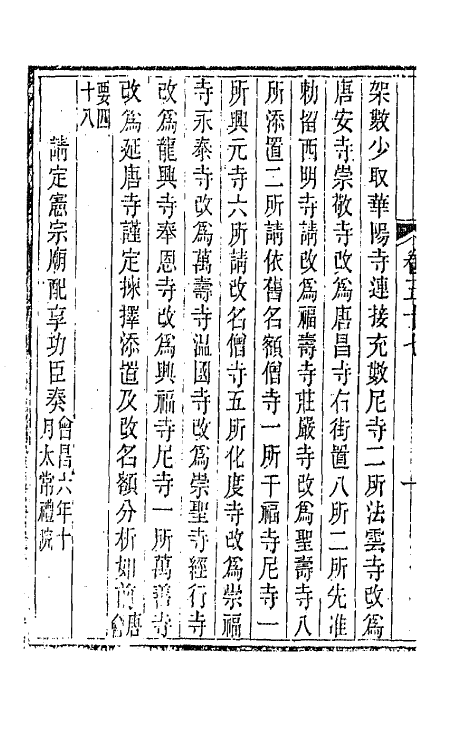 卷五十七
十
架數少取華陽寺連接充數尼寺二所法雲寺改爲
唐安寺崇敬寺改爲唐昌寺右街置八所二所先准
勅留西明寺請改爲福壽寺莊嚴寺改爲聖壽寺八
所添置二所請依舊名額僧寺一所千福寺尼寺一
所興元寺六所請改名僧寺五所化度寺改爲崇福
寺永泰寺改爲萬壽寺温國寺改爲崇聖寺經行寺
改爲龍興寺奉恩寺改爲興福寺尼寺一所萬善寺
改爲延唐寺謹定揀擇添置及改名額分析如前唐會
要四
十八
請定憲宗廟配享功臣奏會昌六年十
月太常禮院